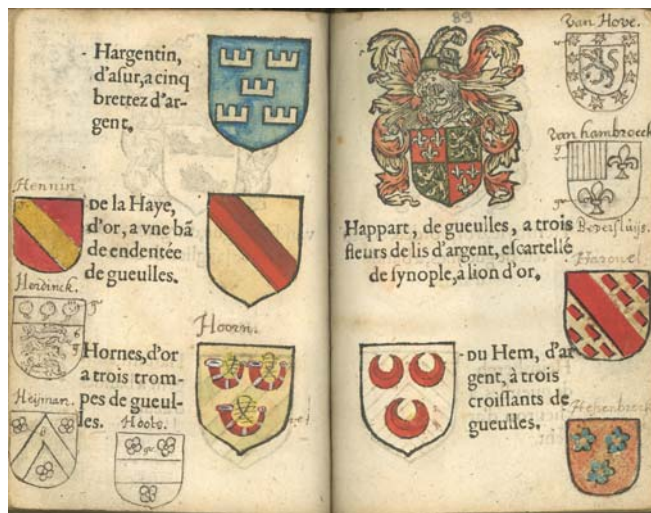 - Hargentin,
d'aſur, a cinq
brettez d'ar-
gent,
Hennin
De la Haye,
d'or, a vne bā
de endentée
de gueulles.
Herdinck.
Hoorn.
Hornes, d'or
a trois trom-
pes de gueul-
les.
Heijman.
Hoobs.
89
van Hove.
van hambroeck
Happart, de gueulles, a trois
fleurs de lis d'argent, eſcartellé
de ſynople, à lion d'or,
Beverſluijs.
- Du Hem, d'ar
gent, à trois
croiſſants de
gueulles.